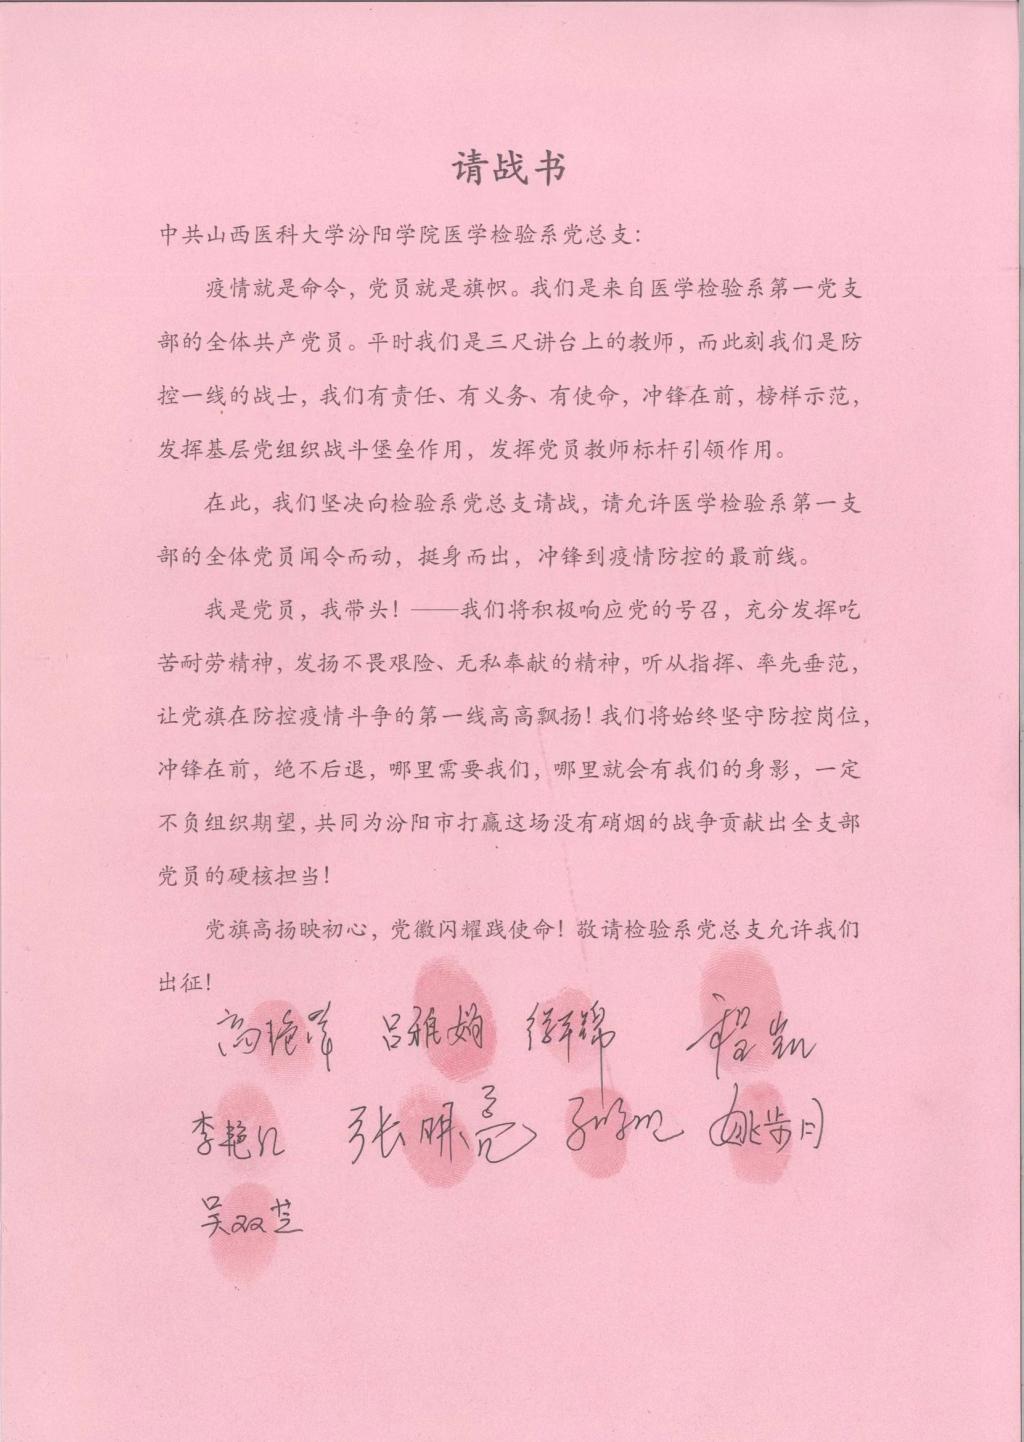 请战书
中共山西医科大学汾阳学院医学检验系党总支：
疫情就是命令，党员就是旗帜。我们是来自医学检验系第一党支
部的全体共产党员。平时我们是三尺讲台上的教师，而此刻我们是防
控一线的战士，我们有责任、有义务、有使命，冲锋在前，榜样示范，
发挥基层党组织战斗堡垒作用，发挥党员教师标杆引领作用。
在此，我们坚决向检验系党总支请战，请允许医学检验系第一支
部的全体党员闻令而动，挺身而出，冲锋到疫情防控的最前线。
我是党员，我带头！——我们将积极响应党的号召，充分发挥吃
苦耐劳精神，发扬不畏艰险、无私奉献的精神，听从指挥、率先垂范，
让党旗在防控疫情斗争的第一线高高飘扬！我们将始终坚守防控岗位，
冲锋在前，绝不后退，哪里需要我们，哪里就会有我们的身影，一定
不负组织期望，共同为汾阳市打赢这场没有硝烟的战争贡献出全支部
党员的硬核担当！
党旗高扬映初心，党徽闪耀践使命！敬请检验系党总支允许我们
出征！
吕雅娟 程凯
李艳红 张明亮 姚步月
吴双芝